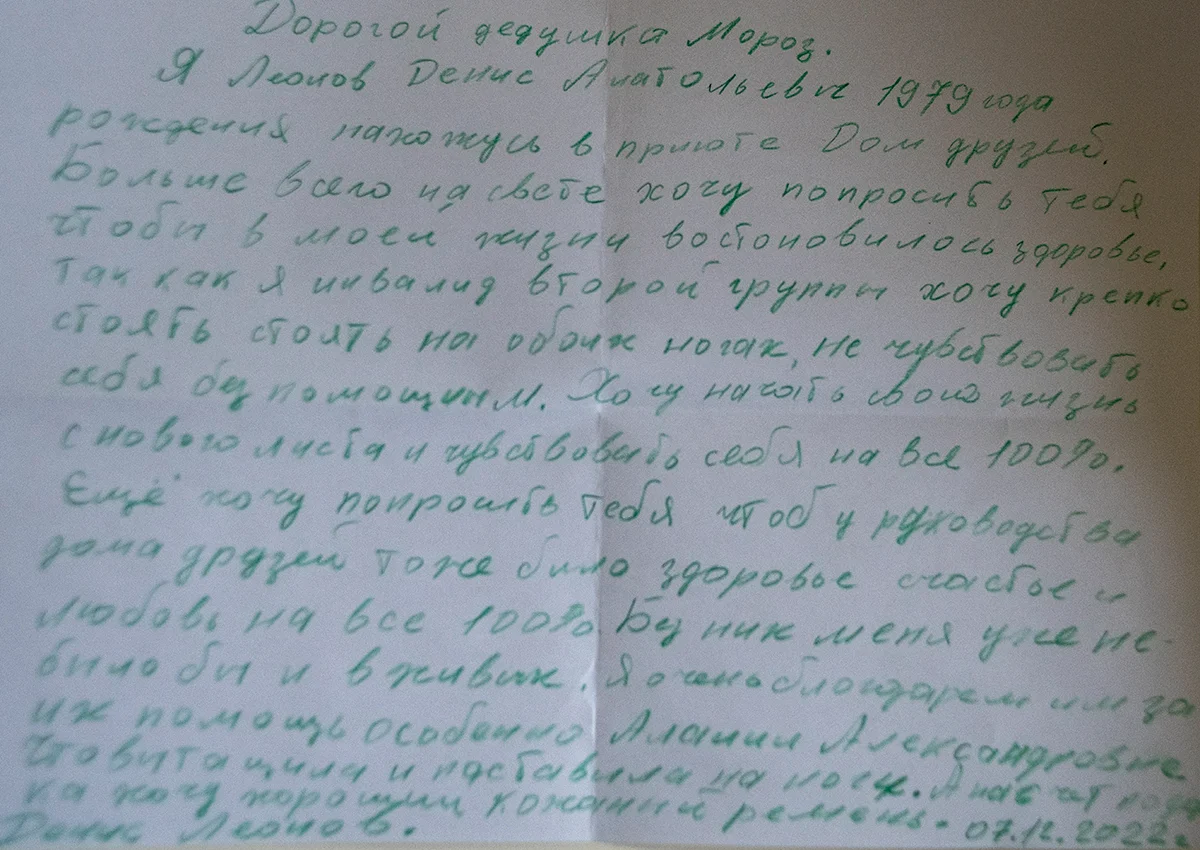 Дорогой дедушка Мороз.
Я Леонов Денис Анатольевич 1979 года
рождения нахожусь в приюте Дом друзей.
Больше всего на свете хочу попросить тебя
чтобы в моей жизни востоновилось здоровье,
так как я инвалид второй группы хочу крепко
стоять стоять на обоих ногах, не чувствовать
себя беспомощным. Хочу начать свою жизнь
с нового листа и чувствовать себя на все 100%.
Ещё хочу попросить тебя чтоб у руководства
дома друзей тоже было здоровье счастье и
любовь на все 100% Без них меня уже не-
было бы и в живых. Я очень благодарен им за
их помощь особенно Алании Александровне
что вытащила и поставила на ноги. А нас чт пода
ка хочу хороший кожанный ремень. 07.12.2022г
Денис Леонов.